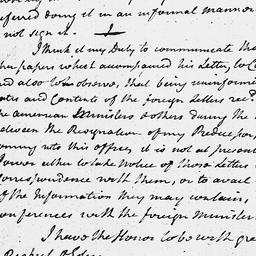 ferred doing it in an informal manner
not sign it.
I think it my Duty to communicate tha
papers which accompanied his Letter, to Co
and also to observe, that being uninform
and Contents of the foreign Letters recd.
the american Ministers & others during the
between the Resignation of my Predecessor,
coming into this office, it is not at present
Power either to take Notice of those Letters
correspondence with them, or to avail
of the Information they may contain,
conferences with the foreign Minister
I have the Honor to be with gre